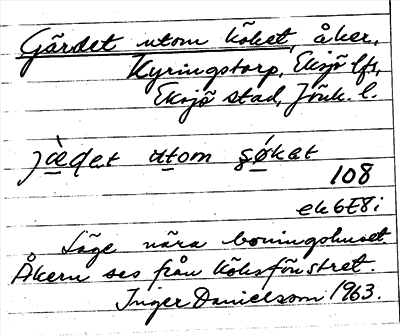 Gärdet utom köket, åker,
Kyringstorp, Eksjö lfs,
Eksjö stad, Jönk. l.
jæ̀det utom søkat
108
ek6E8i
Läge nära boningshuset.
Åkern ses från köksfönstret.
Inger Danielsson 1963.